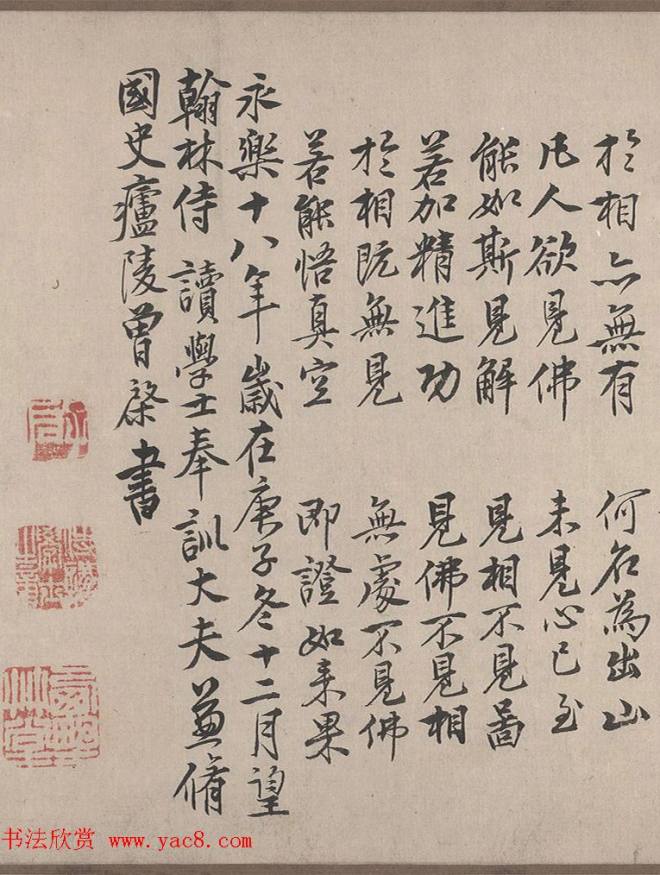 於相亦無有 何名為出山
凡人欲見佛 未見心已至
能如斯見解 見相不見啚
若加精進功 見佛不見相
於相既無見 無處不見佛
若能悟真空 即證如来果
永樂十八年歲在庚子冬十二月望
翰林侍讀學士奉訓大夫兼脩
國史廬陵曾棨書
书法欣赏 www.yac8.com